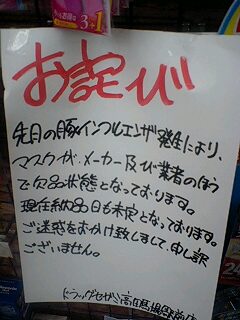 3+1
お詫び
先月の豚インフルエンザ発生により、
マスクが、メーカー及び業者のほう
で欠品状態となっております。
現在納品日も未定となっております。
ご迷惑をおかけ致しまして、申し訳
ございません。
ドラッグセガミ高田馬場駅前店